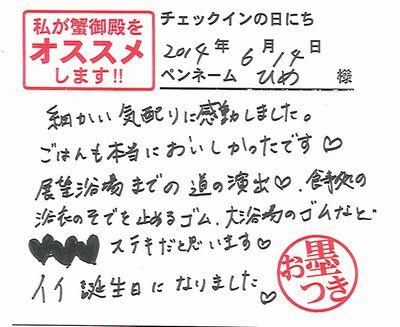 私が蟹御殿を
オススメ
します!!
チェックインの日にち
2014年6月14日
ペンネーム ひめ 様
細かい気配りに感動しました。
ごはんも本当においしかったです♡
展望浴場までの道の演出♡、食事処の
浴衣のそでを止めるゴム、大浴場のゴムなど
ステキだと思います♡
イイ誕生日になりました♡
お墨つき